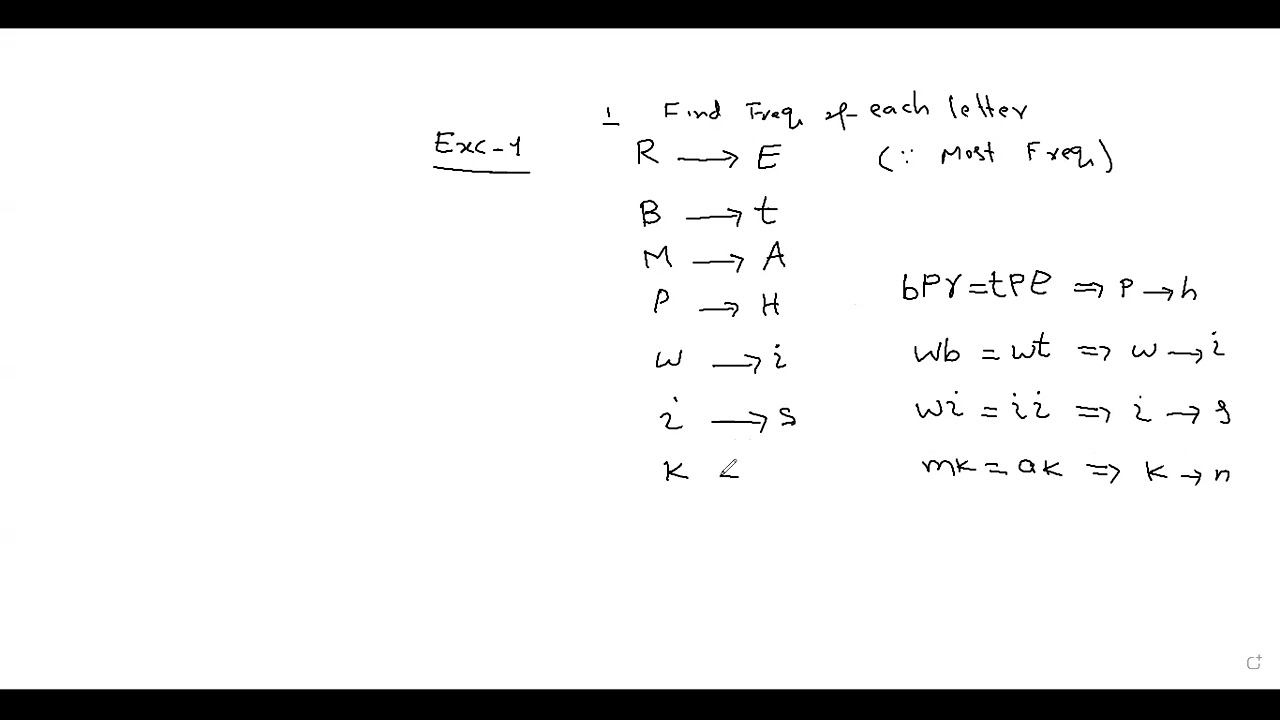 1 Find Freq of each letter
Exc-1
R → E (∵ Most Freq)
B → t
M → A
P → H bPr = tPe ⇒ P → h
w → i wb = wt ⇒ w → i
i → s wi = ii ⇒ i → s
K mK = aK ⇒ K → n